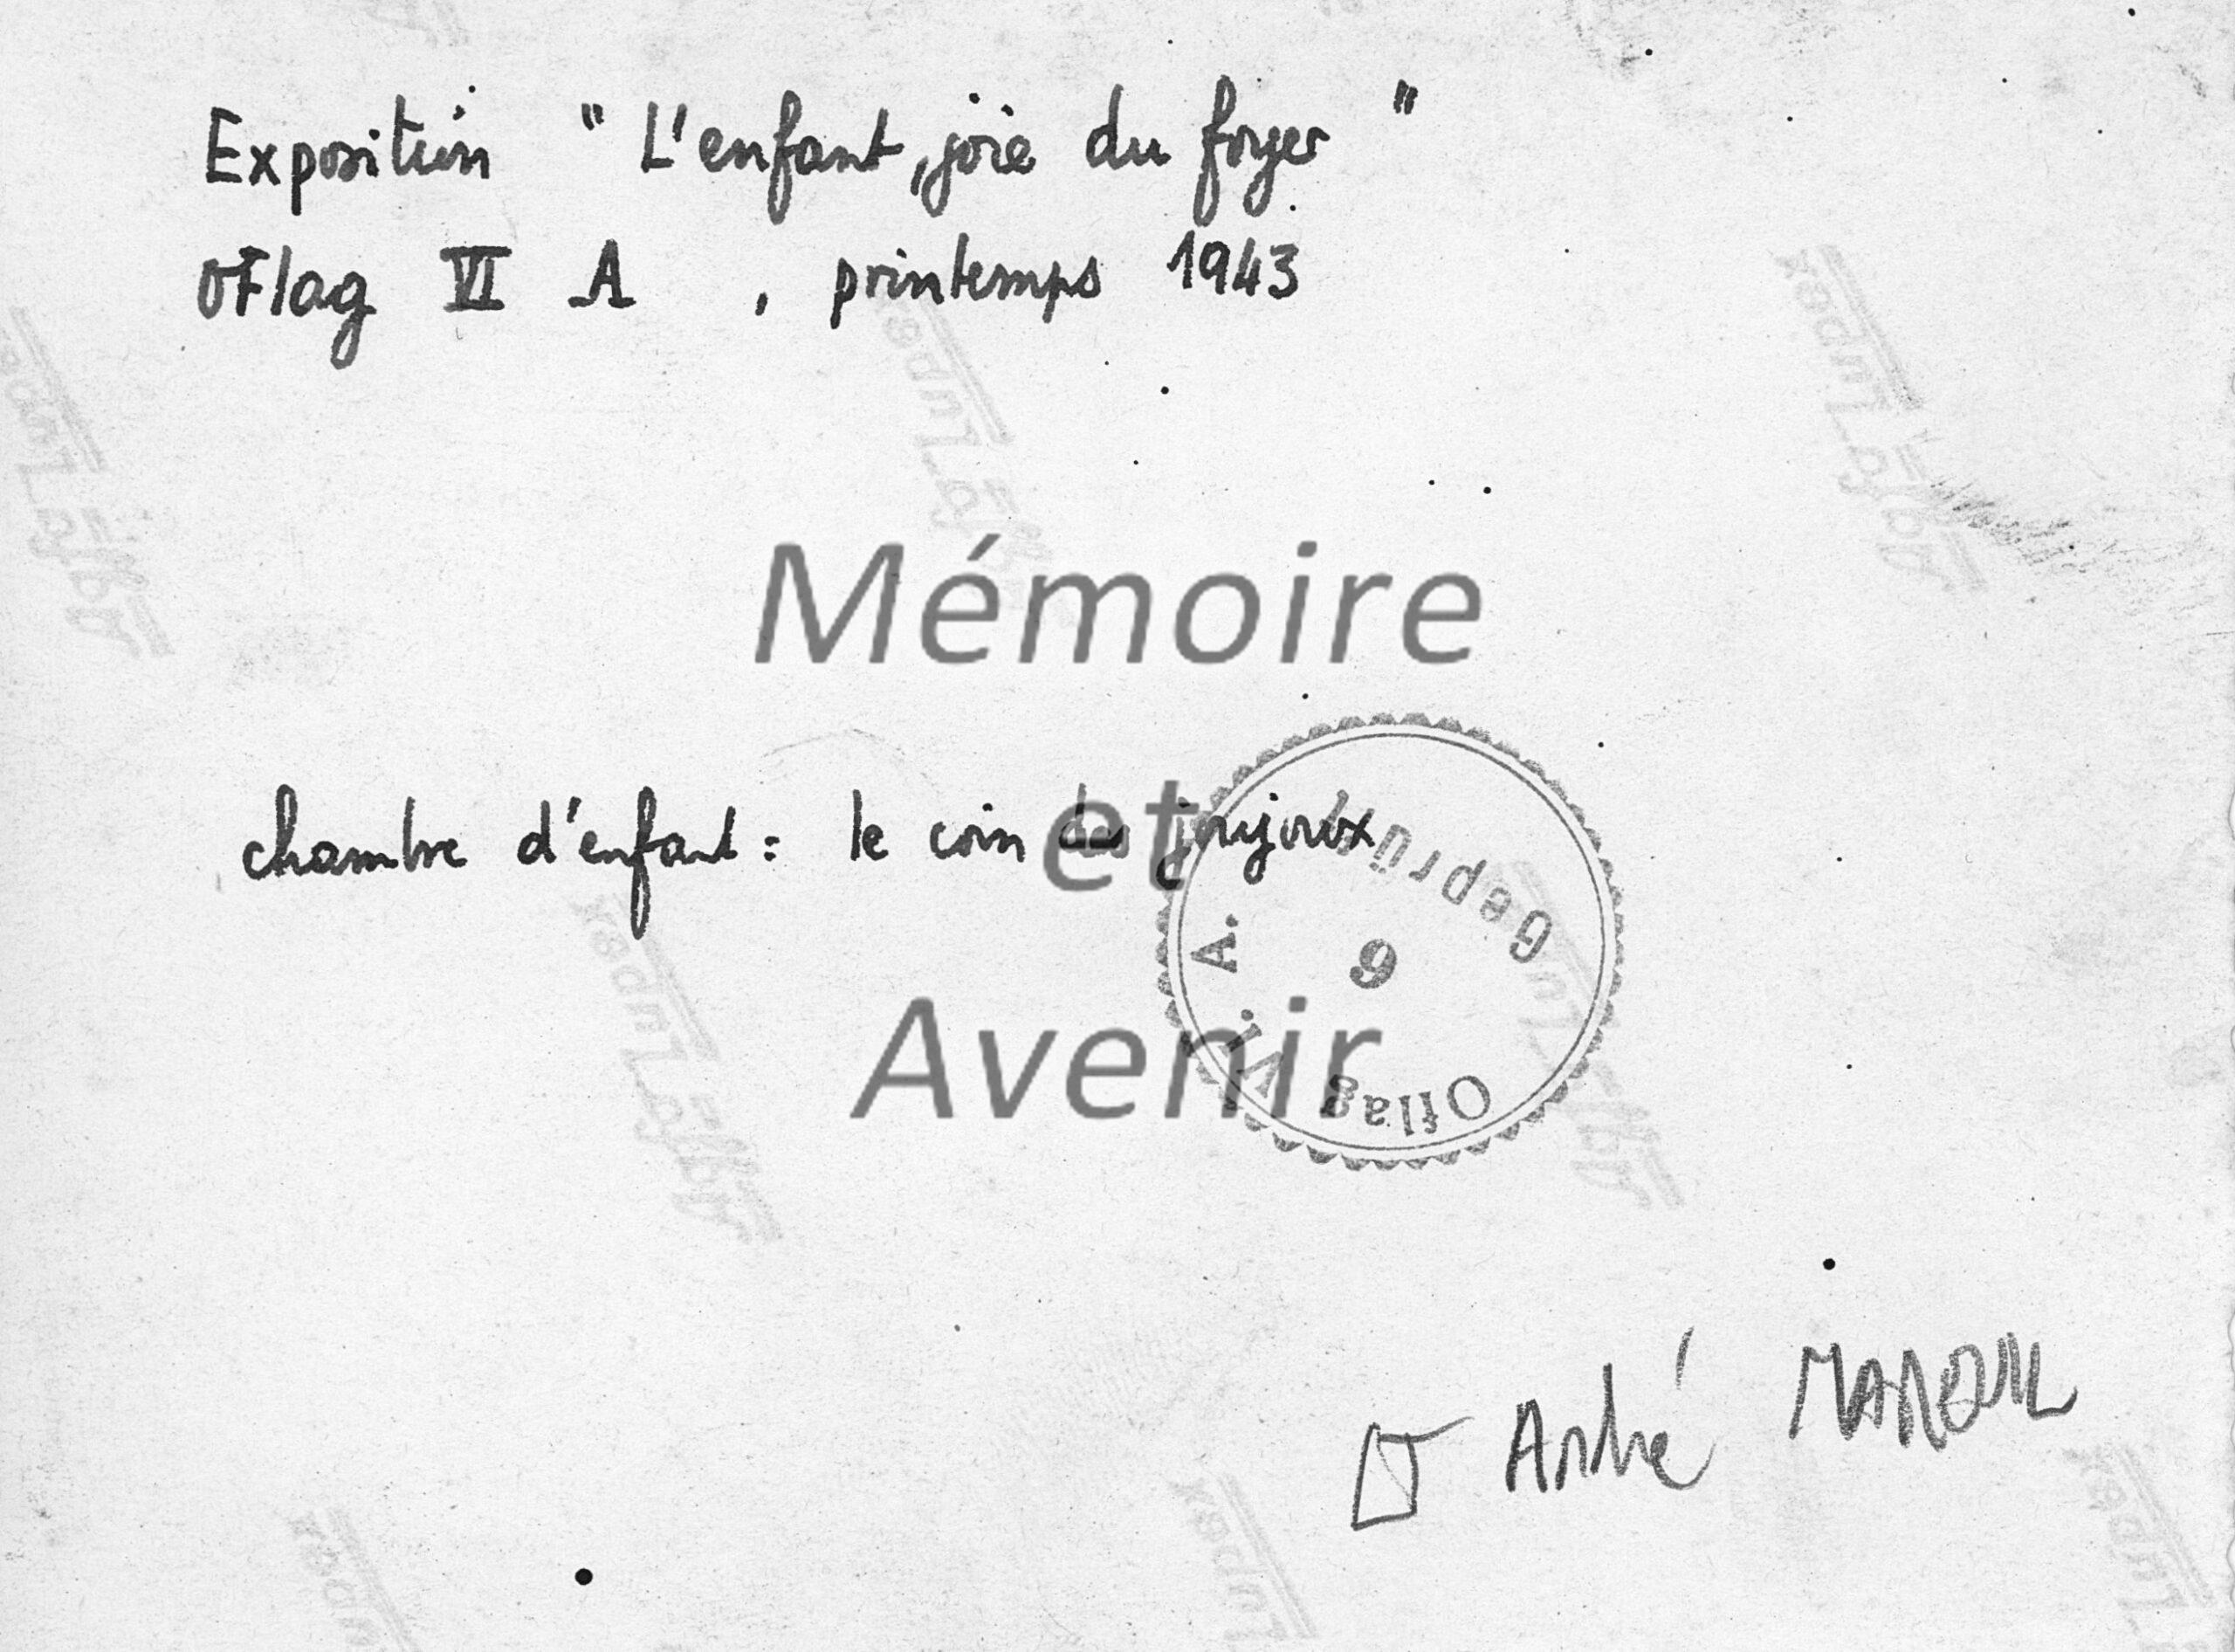 Exposition " L'enfant, joie du foyer "
OFlag VI A , printemps 1943
Mémoire
chambre d'enfant : le coin des joujoux
et
Geprüft
9
Oflag VI. A.
Avenir
Dr André MAREUIL